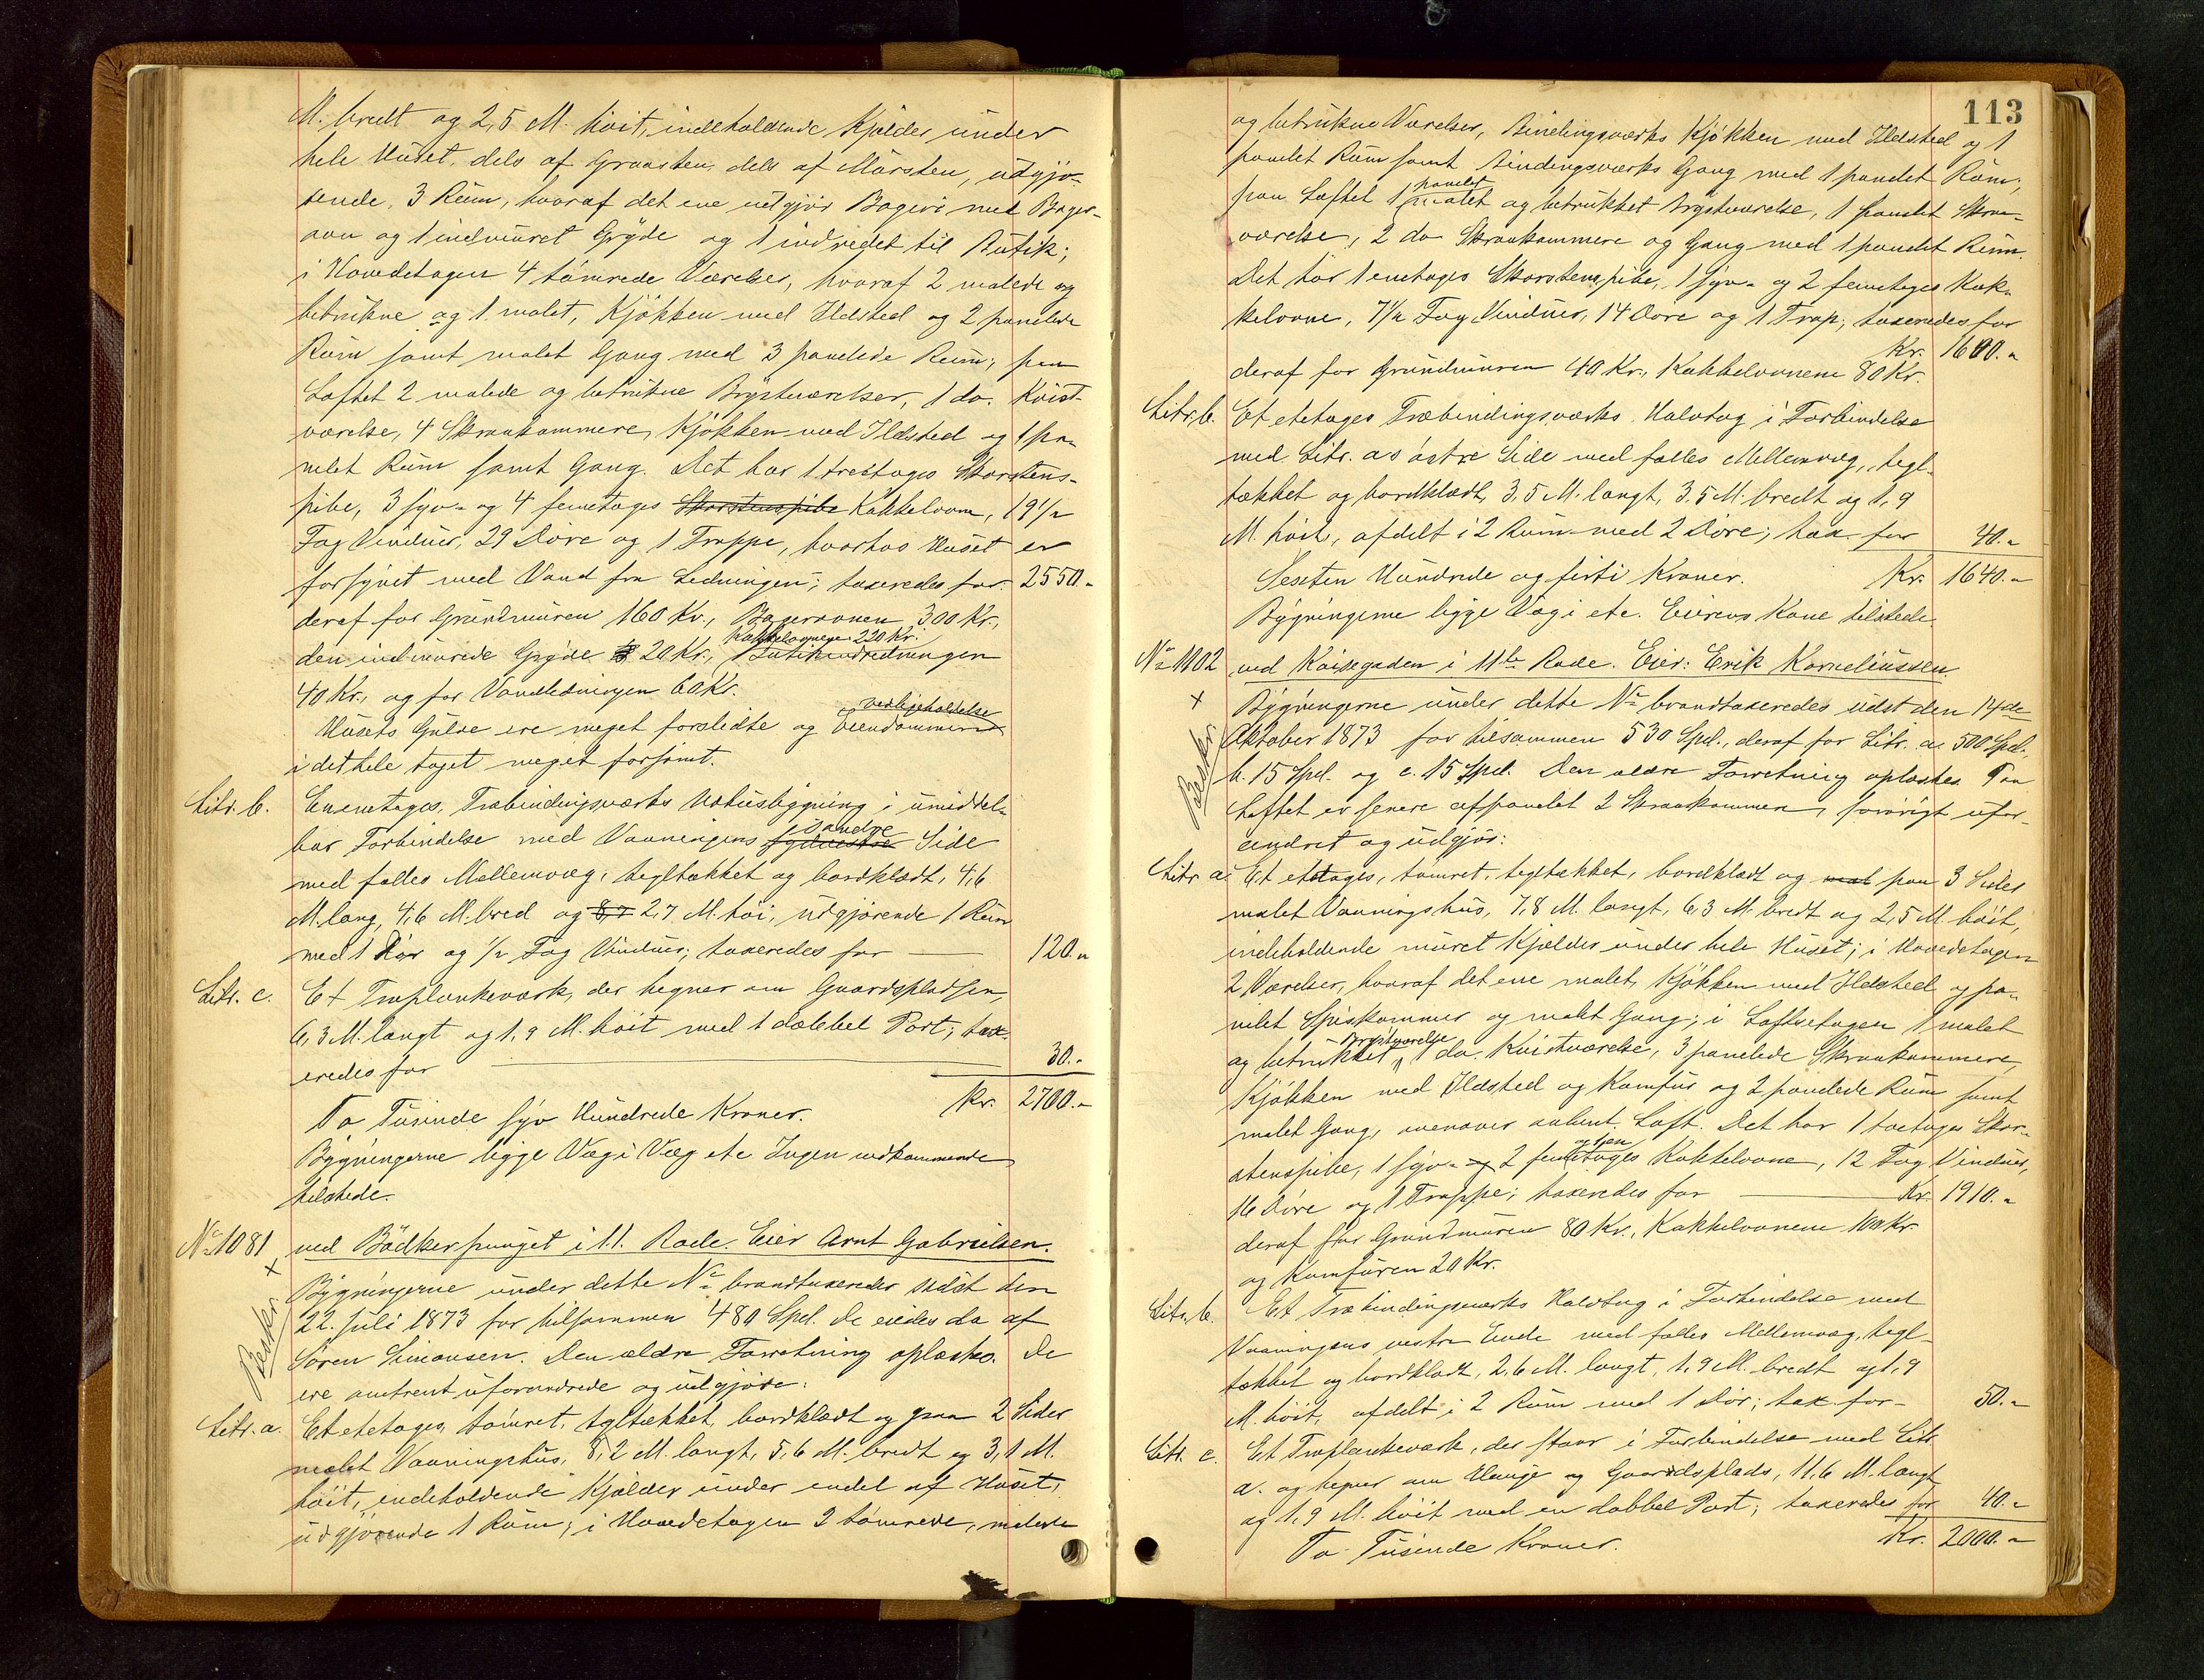 M. bredt og 2,5 M. høit, indeholdende Kjælder under
hele Huset, dels af Graasten, dels af Mursten, udgjø-
rende 3 Rum, hvoraf det ene udgjør Bageri med Bager-
ovn og 1 indmuret Gryde og 1 indredet til Butik;
i Hovedetagen 4 tømrede Værelser, hvoraf 2 malede og
betrukne og 1 malet, Kjøkken med Ildsted og 2 panelede
Rum samt malet Gang med 3 panelede Rum; paa
Loftet 2 malede og betrukne Brystværelser, 1 do. Kvist-
værelse, 4 Skraakammere, Kjøkken med Ildsted og 1 pa-
nelet Rum samt Gang. Det har 1 treetages Skorstens-
pibe, 3 syv- og 4 femetages Skorstenspibe Kakkelovne, 19 1/2
Fag Vinduer, 29 Døre og 1 Trappe, hvorhos Huset er
forsynet med Vand fra Ledningen; taxeredes for 2550.-
deraf for Grundmuren 160 Kr., Bagerovnen 300 Kr.,
Kakkelovnene 220 Kr.
den indmurede Gryde 20 Kr., Butikindredningen
40 Kr. og for Vandledningen 60 Kr.
Husets Gulve ere meget forslidte og Eiendommens vedligeholdelse
i det hele taget meget forsømt.
Litr. b. En enetages Træbindingsværks Udhusbygning i umiddel-
bar Forbindelse med Vaaningens sydvestre søndre Side
med fælles Mellemvæg, tegltækket og bordklædt, 4,6
M. lang, 4,6 M. bred og 8,7 2,7 M. høi, udgjørende 1 Rum
med 1 Dør og 1/2 Fag Vindue; taxeredes for 120.-
Litr. c. Et Træplankeværk, der hegner om Gaardspladsen,
6,3 M. langt og 1,9 M. høit med 1 dobbel Port; tax-
eredes for 30.-
Kr. 2700.-
To Tusinde syv Hundrede Kroner.
Bygningerne ligge Væg i Væg etc. Ingen vedkommende
tilstede.
No 1081 ved Bødkersmuget i 11. Rode. Eier Arnt Gabrielsen.
×
Beskr.
Bygningerne under dette No brandtaxeredes sidst den
22. Juli 1873 for tilsammen 480 Spd. De eiedes da af
Søren Simonsen. Den ældre Forretning oplæstes. De
ere omtrent uforandrede og udgjøre:
Litr. a. Et etetages, tømret, tegltækket, bordklædt og paa 2 Sider
malet Vaaningshus, 8,2 M. langt, 5,6 M. bredt og 3,1 M.
høit, indeholdende Kjælder under endel af Huset,
udgjørende 1 Rum; i Hovedetagen 2 tømrede, malede
113
og betrukne Værelser, Bindingsværks Kjøkken med Ildsted og 1
panelet Rum samt Bindingsværks Gang med 1 panelet Rum;
paa Loftet 1 panelet malet og betrukket Brystværelse, 1 panelet Skraa-
værelse, 2 do Skraakammere og Gang med 1 panelet Rum.
Det har 1 enetages Skorstenspibe, 1 syv- og 2 femetages Kak-
kelovne, 7 1/2 Fag Vinduer, 14 Døre og 1 Trap; taxeredes for
Kr. 1600.-
deraf for Grundmuren 40 Kr., Kakkelovnene 80 Kr.
Litr. b. Et etetages Træbindingsværks Halvtag i Forbindelse
med Litr. a's østre Side med fælles Mellemvæg, tegl-
tækket og bordklædt, 3,5 M. langt, 3,5 M. bredt og 1,9
M. høit, afdelt i 2 Rum med 2 Døre; tax. for 40.-
Sexten Hundrede og firti Kroner. Kr. 1640.-
Bygningerne ligge Væg i etc. Eierens Kone tilstede.
No 1102 ved Kaisegaden i 11te Rode. Eier: Erik Korneliussen.
×
Beskr.
Bygningerne under dette No brandtaxeredes sidst den 14de
Oktober 1873 for tilsammen 530 Spd., deraf for Litr. a. 500 Spd.,
b. 15 Spd. og c. 15 Spd. Den ældre Forretning oplæstes. Paa
Loftet er senere afpanelet 2 Skraakammere, forøvrigt ufor-
andret og udgjør:
Litr a. Et etetages, tømret, tegltækket, bordklædt og mal paa 3 Sider
malet Vaaningshus, 7,8 M. langt, 6,3 M. bredt og 2,5 M. høit,
indeholdende muret Kjælder under hele Huset; i Hovedetagen
2 Værelser, hvoraf det ene malet, Kjøkken med Ildsted og pa-
nelet Spiskammer og malet Gang; i Loftsetagen 1 malet
og betrukket Brystværelse, 1 do. Kvistværelse, 3 panelede Skraakammere,
Kjøkken med Ildsted og Komfur og 2 panelede Rum samt
malet Gang, ovenover aabent Loft. Det har 1 toetages Skor-
stenspibe, 1 syv- og 2 femetages Kakkelovne, 12 Fag Vinduer,
16 Døre og 1 Trappe; taxeredes for Kr. 1910.-
deraf for Grundmuren 80 Kr., Kakkelovnene 100 Kr.
og Komfuren 20 Kr.
Litr. b. Et Træbindingsværks Halvtag i Forbindelse med
Vaaningens vestre Ende med fælles Mellemvæg, tegl-
tækket og bordklædt, 2,6 M. langt, 1,9 M. bredt og 1,9
M. høit, afdelt i 2 Rum med 1 Dør; tax. for 50.-
Litr. c. Et Træplankeværk, der staar i Forbindelse med Litr.
a. og hegner om Hauge og Gaardsplads, 11,6 M. langt
og 1,9 M. høit med en dobbel Port; taxeredes for 40.-
To Tusinde Kroner. Kr. 2000.-